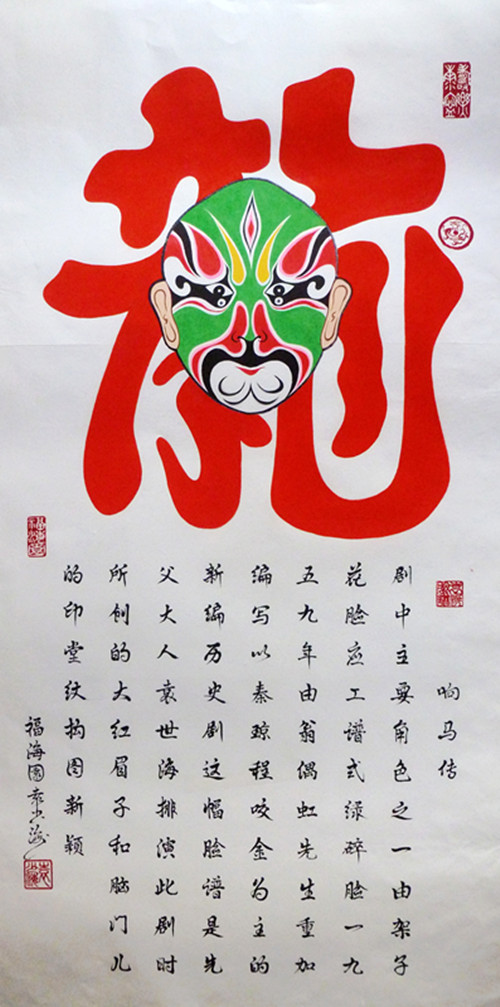 龍
响马传
剧中主要角色之一由架子
花脸应工谱式绿碎脸一九
五九年由翁偶虹先生重加
编写以秦琼程咬金为主的
新编历史剧这幅脸谱是先
父大人袁世海排演此剧时
所创的大红眉子和脑门儿
的印堂纹构图新颖
福海园袁少海